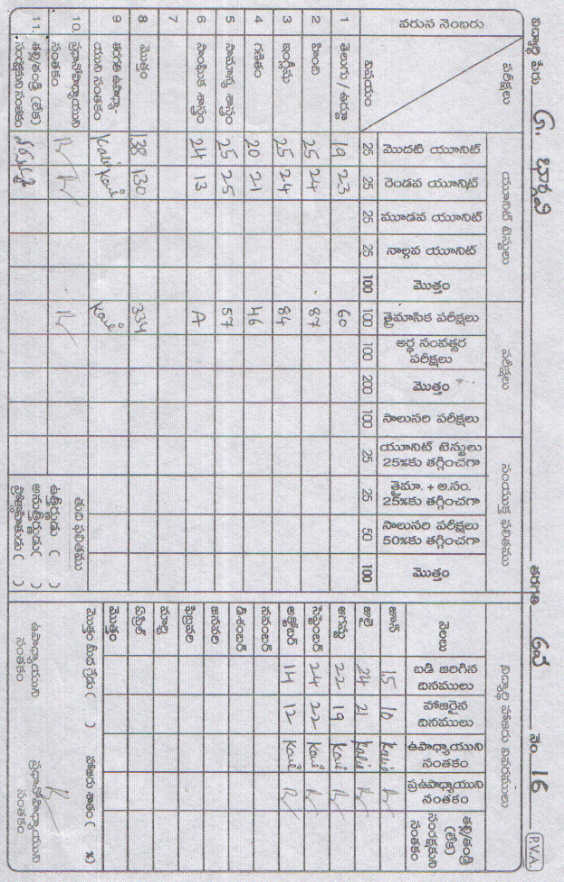 విద్యార్థి పేరు G. భార్గవి తరగతి 6వ నెం 16 P.V.A.
వరుస నెంబరు పరీక్షలు యూనిట్ టెస్టులు పరీక్షలు సంయుక్త ఫలితము
విషయం మొదటి యూనిట్ రెండవ యూనిట్ మూడవ యూనిట్ నాల్గవ యూనిట్ మొత్తం త్రైమాసిక పరీక్షలు అర్ధ సంవత్సర పరీక్షలు మొత్తం సాలుసరి పరీక్షలు యూనిట్ టెస్టులు 25%కు తగ్గించగా త్రైమా. + అ.సం. 25%కు తగ్గించగా సాలుసరి పరీక్షలు 50%కు తగ్గించగా మొత్తం
25 25 25 25 100 100 100 200 100 25 25 50 100
1 తెలుగు / ఉర్దూ 19 23 60
2 హింది 25 24 87
3 ఇంగ్లీషు 25 24 84
4 గణితం 20 21 46
5 సామాన్య శాస్త్రం 25 25 57
6 సాంఘిక శాస్త్రం 24 13 A
7
8 మొత్తం 138 130 334
9 తరగతి ఉపాధ్యా-యుని సంతకం
10. ప్రధానోపాధ్యాయుని సంతకం
11. తల్లి/తండ్రి (లేక) సంరక్షకుని సంతకం
తుది ఫలితము
ఉత్తీర్ణుడు ( )
అనుత్తీర్ణుడు ( )
ప్రోత్సాహితుడు ( )
విద్యార్థి హాజరు వివరములు
నెలలు బడి జరిగిన దినములు హాజరైన దినములు ఉపాధ్యాయుని సంతకం ప్రఉపాధ్యాయుని సంతకం తల్లి/తండ్రి (లేక) సంరక్షకుని సంతకం
జూన్ 15 10
జులై 24 21
ఆగష్టు 22 19
సెప్టెంబర్ 24 22
అక్టోబర్ 14 12
నవంబర్
డిశంబర్
జనవరి
ఫిబ్రవరి
మార్చి
ఏప్రిల్
మొత్తం
మొత్తం మీద గ్రేడు ( ) హాజరు శాతం ( %)
ఉపాధ్యాయుని సంతకం ప్రధానోపాధ్యాయుని సంతకం